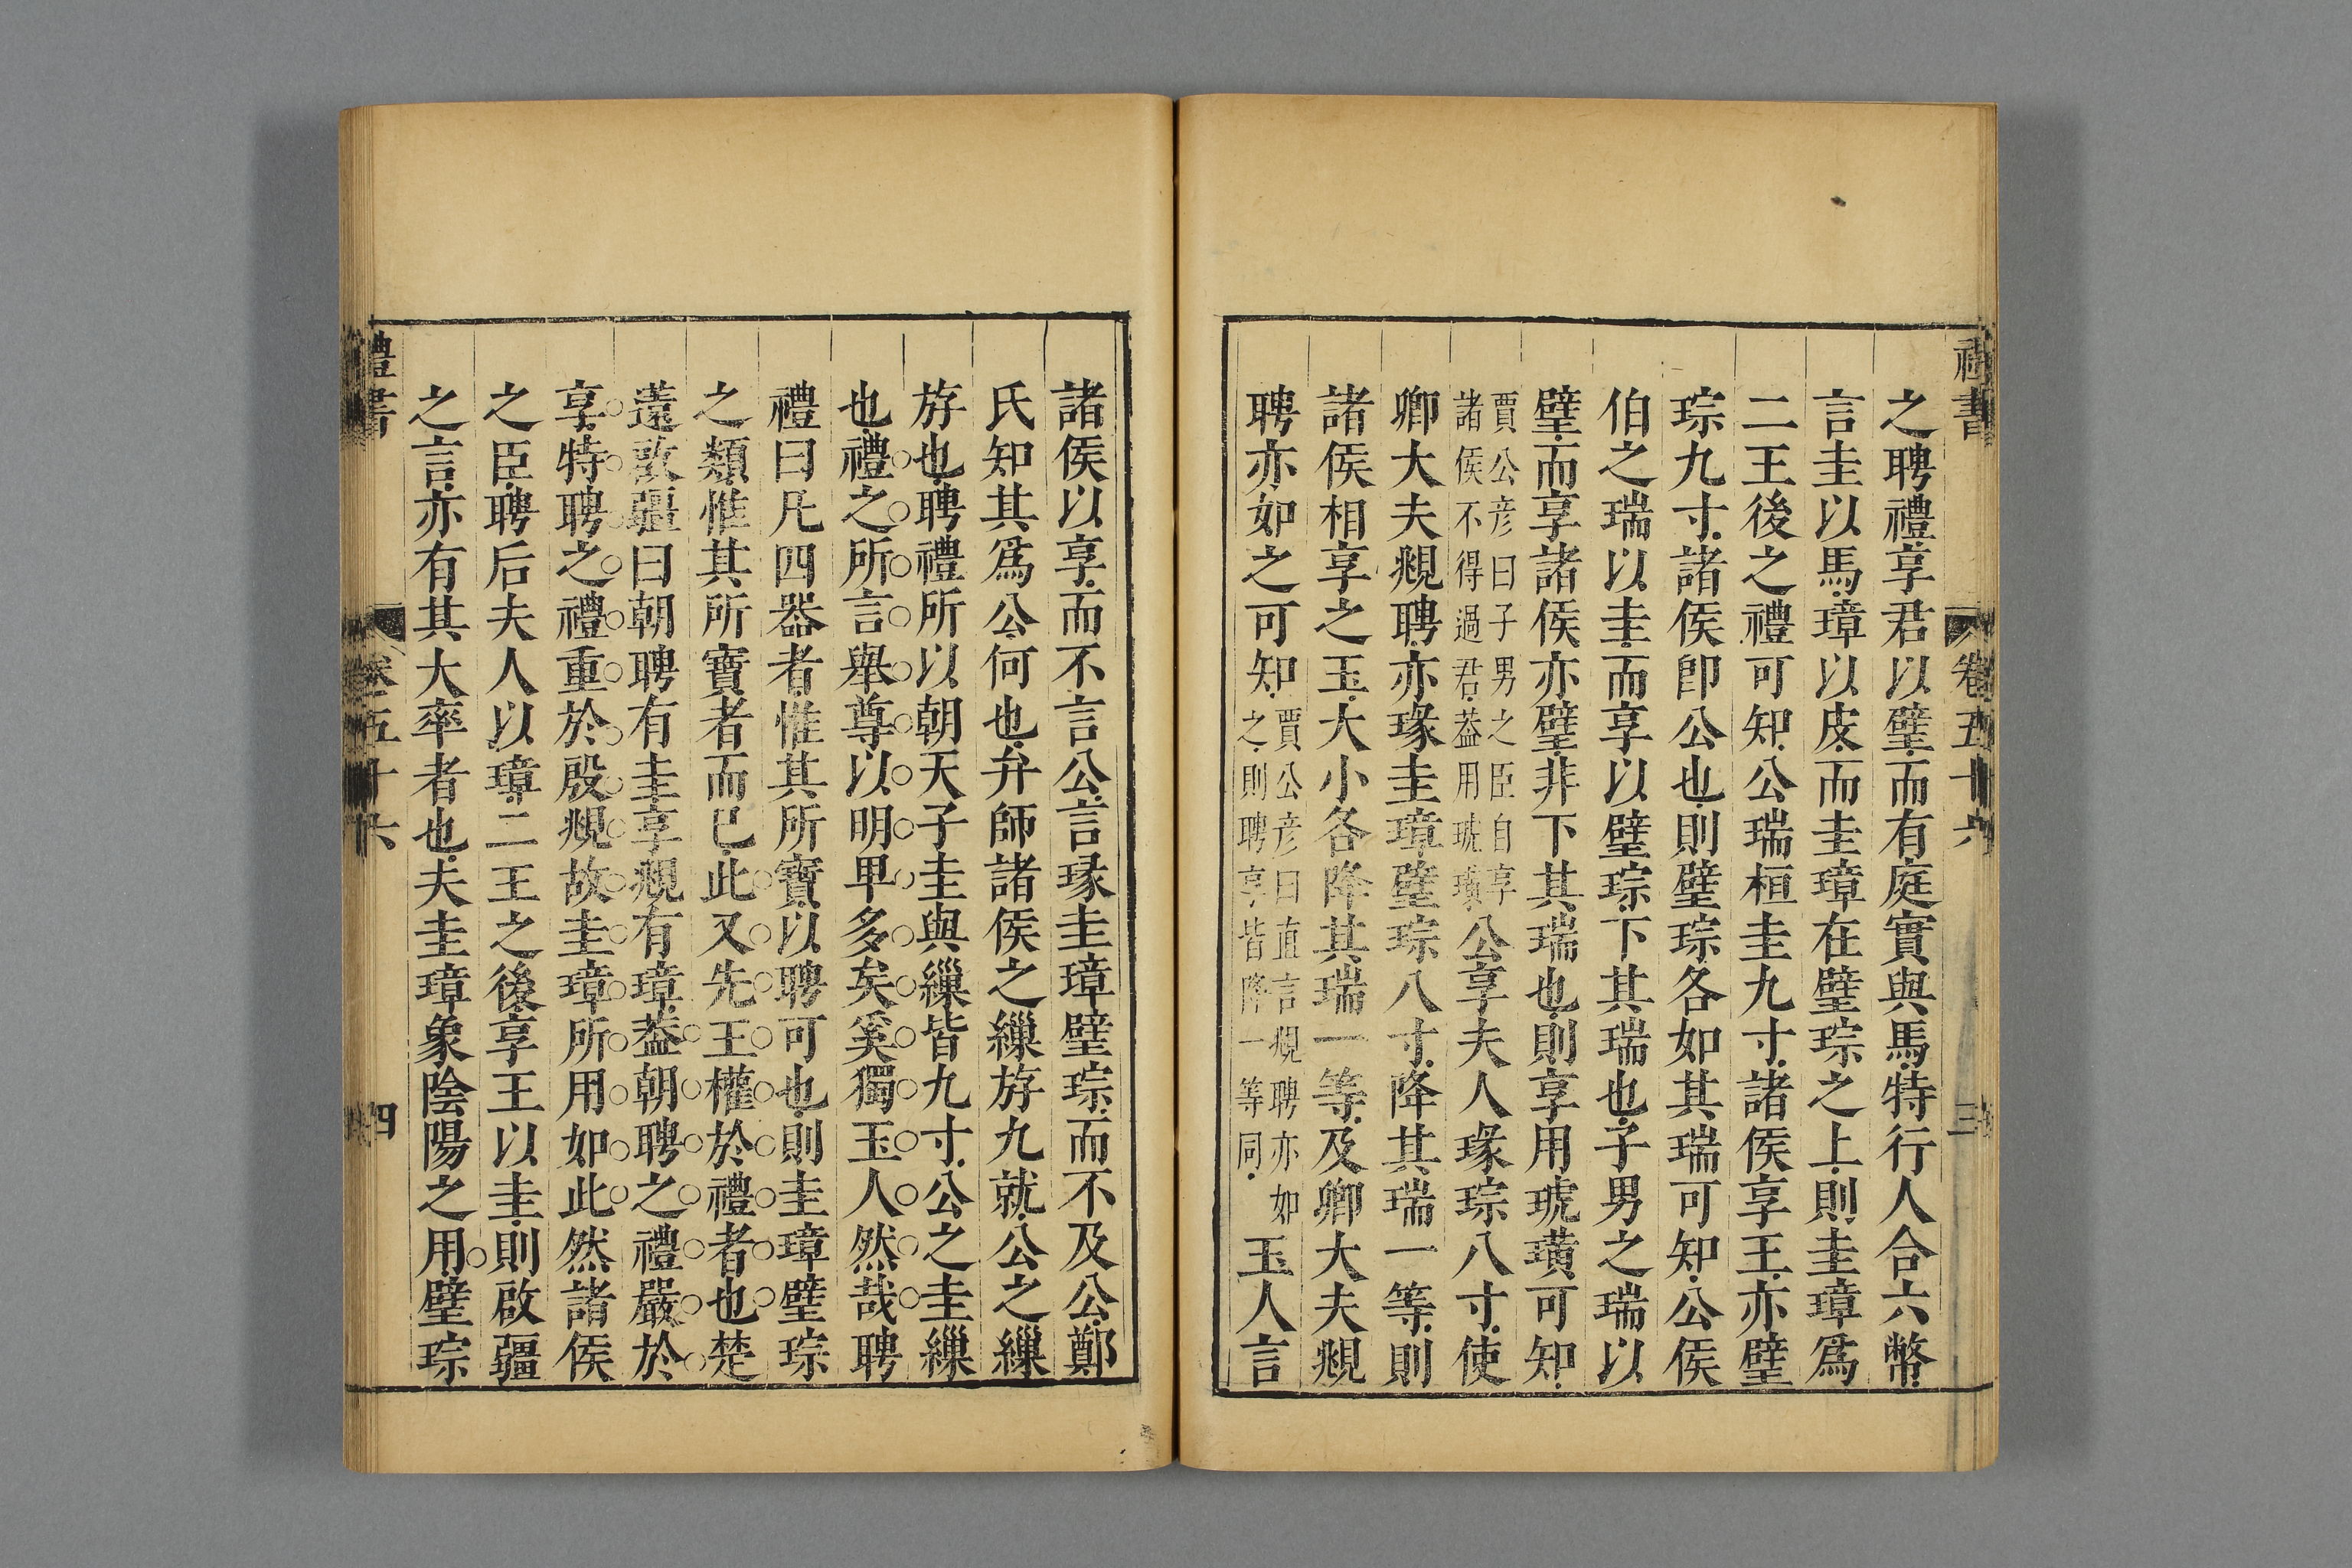 禮書 卷五十六 三
之聘禮享君以璧而有庭實與馬特行人合六幣
言圭以馬璋以皮而圭璋在璧琮之上則圭璋爲
二王後之禮可知公瑞桓圭九寸諸侯享王亦璧
琮九寸諸侯卽公也則璧琮各如其瑞可知公侯
伯之瑞以圭而享以璧琮下其瑞也子男之瑞以
璧而享諸侯亦璧非下其瑞也則享用琥璜可知
賈公彦曰子男之臣自享
諸侯不得過君葢用琥璜
公享夫人瑑琮八寸使
卿大夫覜聘亦瑑圭璋璧琮八寸降其瑞一等則
諸侯相享之玉大小各降其瑞一等及卿大夫覜
聘亦如之可知
賈公彦曰直言覜聘亦如
之則聘享皆降一等同
玉人言
諸侯以享而不言公言瑑圭璋璧琮而不及公鄭
氏知其爲公何也弁師諸侯之繅斿九就公之繅
斿也聘禮所以朝天子圭與繅皆九寸公之圭繅
也禮之所言舉尊以明卑多矣奚獨玉人然哉聘
禮曰凡四器者惟其所寶以聘可也則圭璋璧琮
之類惟其所寶者而已此又先王權於禮者也楚
薳啟疆曰朝聘有圭享覜有璋葢朝聘之禮嚴於
享特聘之禮重於殷覜故圭璋所用如此然諸侯
之臣聘后夫人以璋二王之後享王以圭則啟疆
之言亦有其大率者也夫圭璋象陰陽之用璧琮
禮書 卷五十六 四